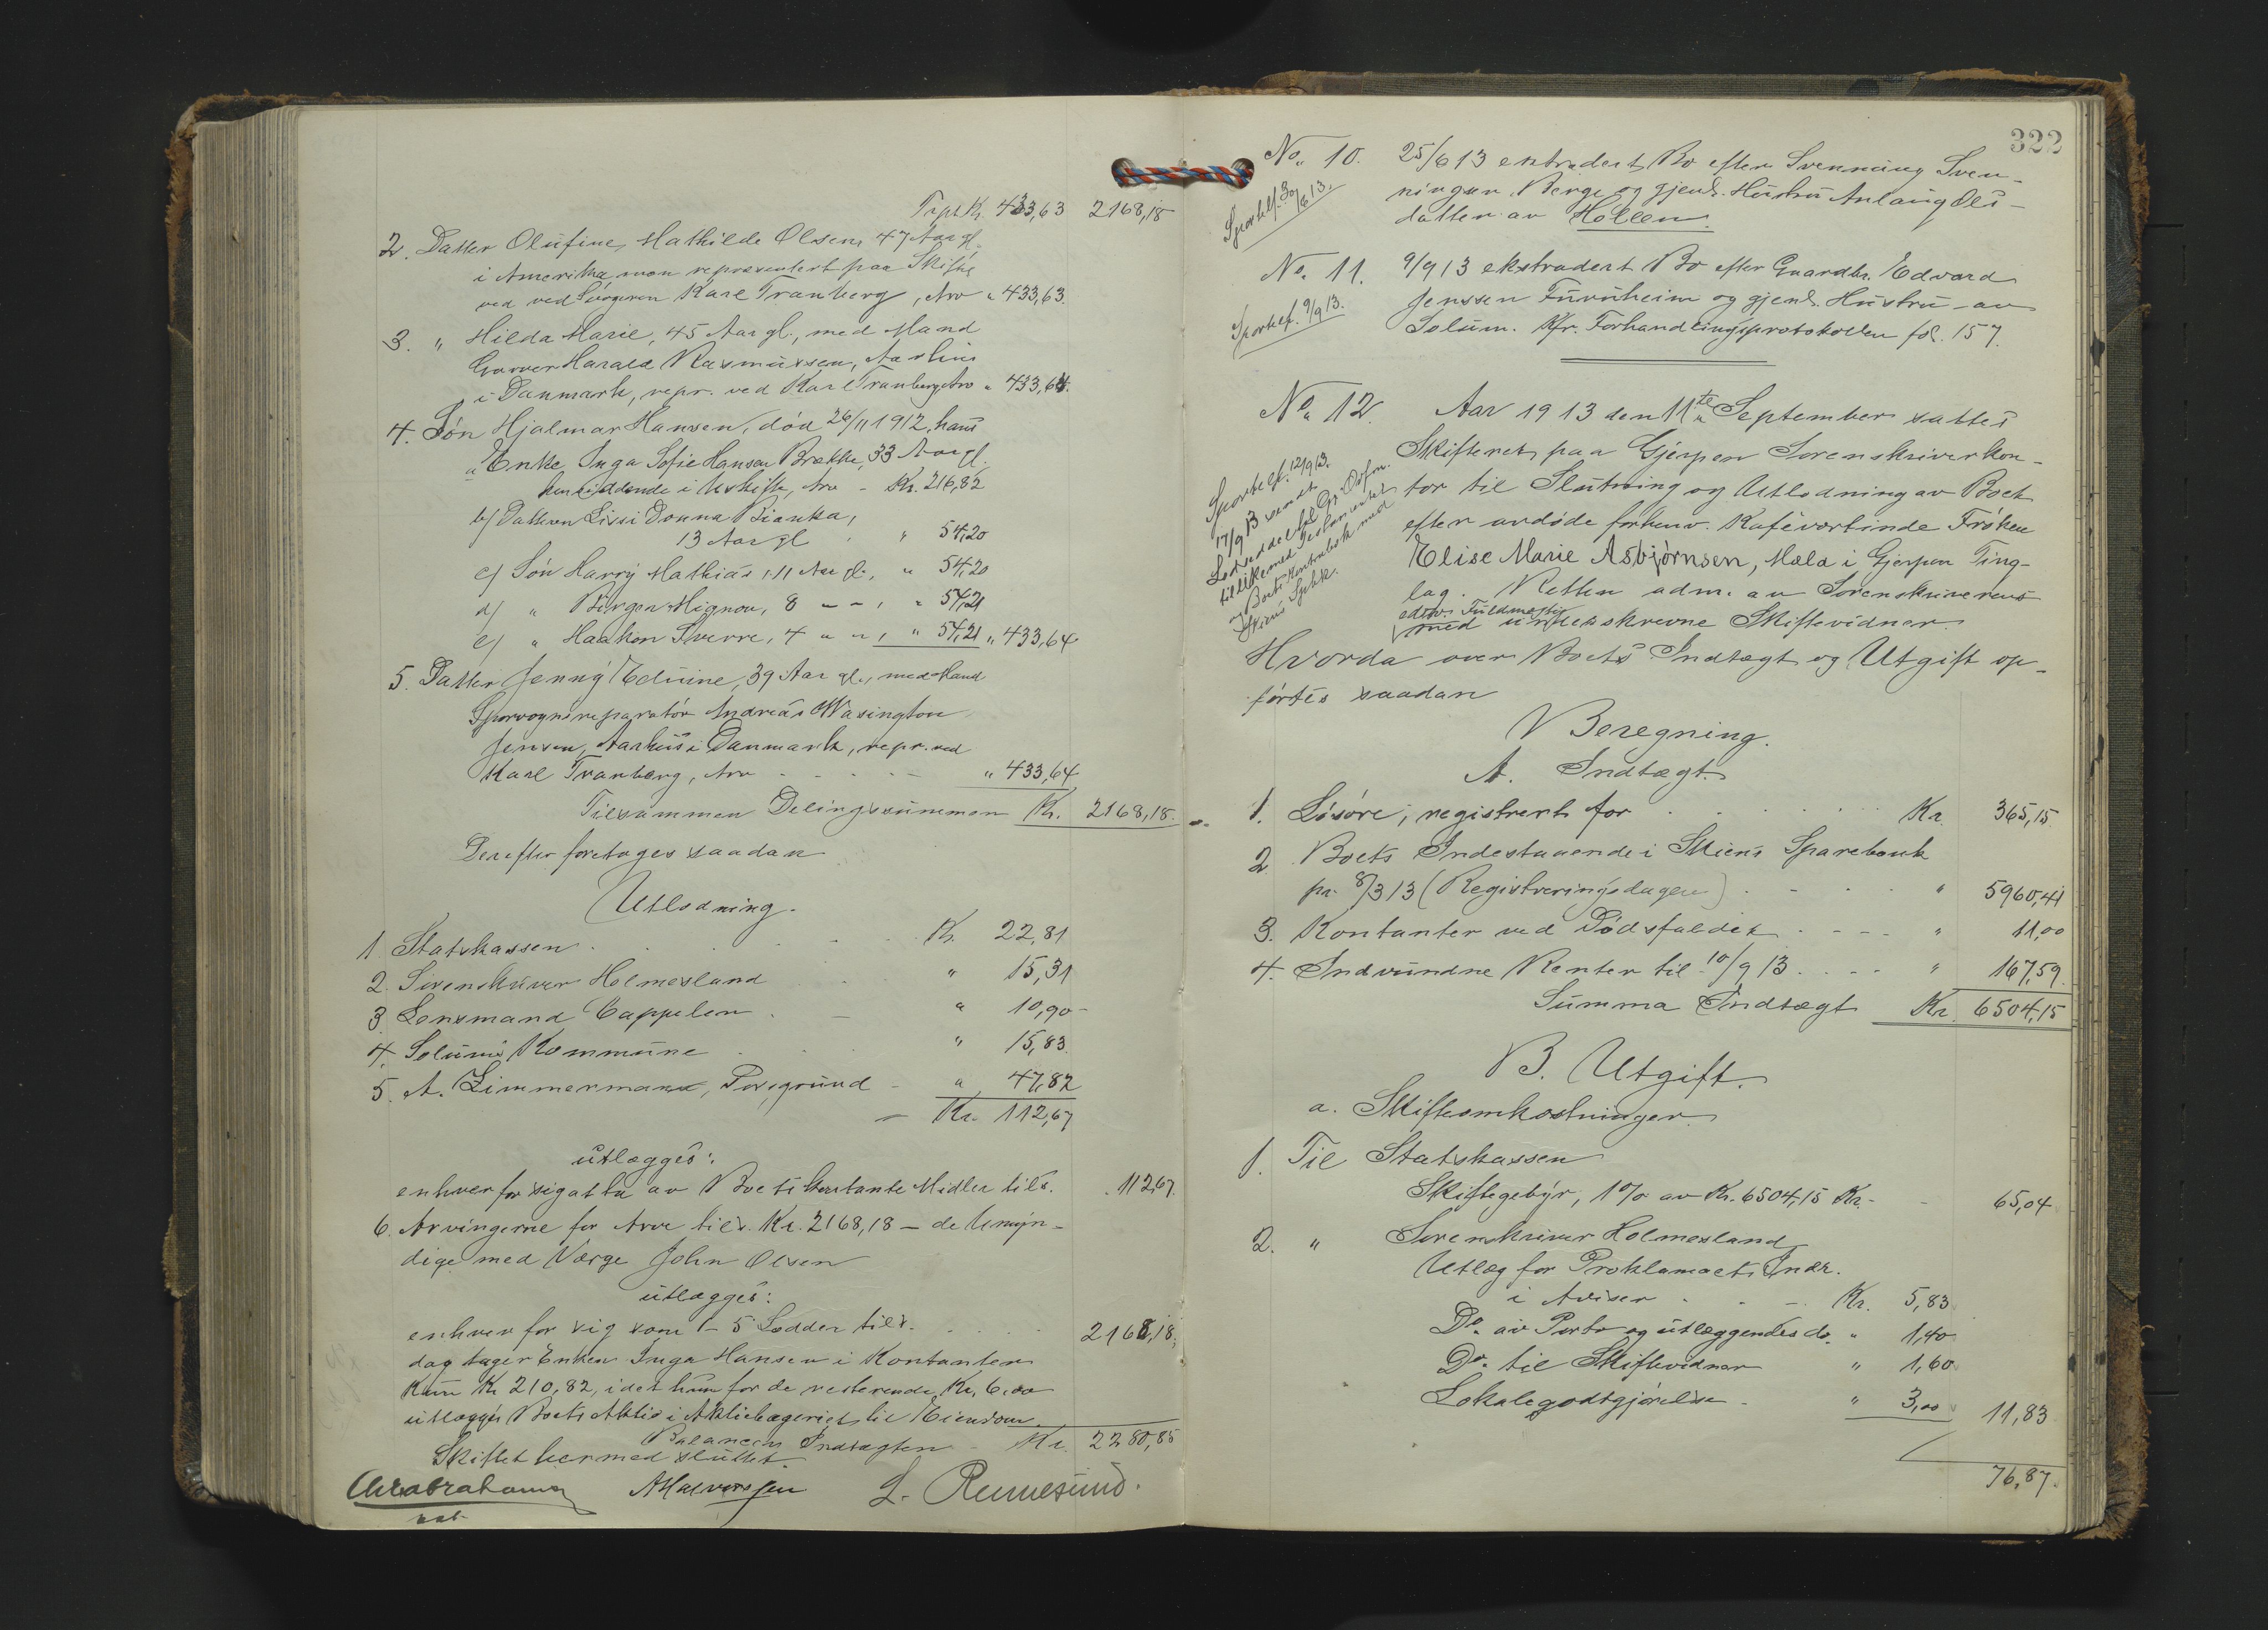 Trpt Kr. 433,63 2168,18
2. Datter Olufine Mathilde Olsen 47 Aar gl.
i Amerika, men repræsentert paa Skifte
ved Svogeren Karl Tranberg, Arv " 433,63.
3. " Hilda Marie, 45 Aar gl., med Mand
Garver Harald Rasmussen, Aarhus
i Danmark, repr. ved Karl Tranberg, Arv " 433,64.
4. Søn Hjalmar Hansen, død 26/11 1912, hans
a Enke, Inga Sofie Hansen Brække, 33 Aar gl.
hensiddende i Uskifte, Arv - Kr. 216,82
b/ Datteren Lissi Donna Bianka,
13 Aar gl. " 54,20
c/ Søn Harry Mathias, 11 Aar gl., " 54,20
d/ " Birger Mignon, 8 - - , " 54,21
e/ " Haakon Sverre, 4 " " , " 54,21 " 433,64
5. Datter Jenny Edvine, 39 Aar gl., med Mand
Sporvognsreparatør Andreas Wasington
Jensen, Aarhus i Danmark, repr. ved
Karl Tranberg, Arv - - - - " 433,64
Tilsammen Delingssummen Kr. 2168,18.
Derefter foretages saadan
Utlodning.
1. Statskassen Kr. 22,81
2. Sorenskriver Holmesland " 15,31
3. Lensmand Cappelen " 10,90
4. Solums Kommune " 15,83
5. A. Zimmermann, Porsgrund - " 47,82
- Kr. 112,67
utlægges:
enhver for sig at ta av Boets kontante Midler tils. 112,67.
6. Arvingerne for Arv tils. Kr. 2168,18 - de Umyn-
dige med Værge John Olsen
utlægges:
enhver for sig som 1 - 5 Lodder tils. 2168,18.
dog tager Enken Inga Hansen i Kontanter
kun Kr 210,82, idet hun for de resterende Kr. 6,00
utlægges Boets Aktie i Aktiebageriet til Eiendom.
Balancen Indtægten - Kr. 2280,85
Skiftet hermed sluttet.
Chr Abrahams AHalvorsen L. Rennesund.
322
No. 10. 25/6 13 extradert Bo efter Svenning Sven-
ningsen Berge og gjenl. Hustru Anlaug Ols-
datter av Hollen.
Sportelf. 30/6 13.
No. 11. 9/9 13 ekstradert Bo efter Gaardbr. Edvard
Jenssen Furuheim og gjenl. Hustru av
Solum. Kfr. Forhandlingsprotokollen fol. 157.
Sportelf. 9/9 13.
No. 12. Aar 1913 den 11te September sattes
Skifteret paa Gjerpen Sorenskriverkon-
tor til Slutning og Utlodning av Boet
efter avdøde forhenv. Kafévertinde Frøken
Elise Marie Asbjørnsen, Mæla i Gjerpen Ting-
lag. Retten adm. av Sorenskriverens
edsv. Fuldmægtig
med undesskrevne Skiftevidner.
Sportelf. 12/9 13.
17/9 13 sendt
Lodseddel til
tillikemed Testamentet
og Boets Kontrabok med
Skiens Spbk.
Hvorda over Boets Indtægt og Utgift op-
førtes saadan
Beregning.
A. Indtægt.
1. Løsøre, registrert for Kr. 365,15
2. Boets Indestaaende i Skiens Sparebank
pr. 8/3 13 (Registreringsdagen) " 5960,41
3. Kontanter ved Dødsfaldet - - - - " 11,00
4. Indvundne Renter til 10/9 13 - - - - " 167,59
Summa Indtægt Kr. 6504,15
B. Utgift.
a. Skifteomkostninger.
1. Til Statskassen
Skiftegebyr, 1% av Kr. 6504,15 Kr. - 65,04
2. " Sorenskriver Holmesland
Utlæg for Proklamaets Indr.
i Aviser Kr. 5,83
Do. av Porto og utlæggendes do. " 1,40
Do. til Skiftevidner " 1,60
Lokalegodtgjørelse " 3,00 11,83
76,87.